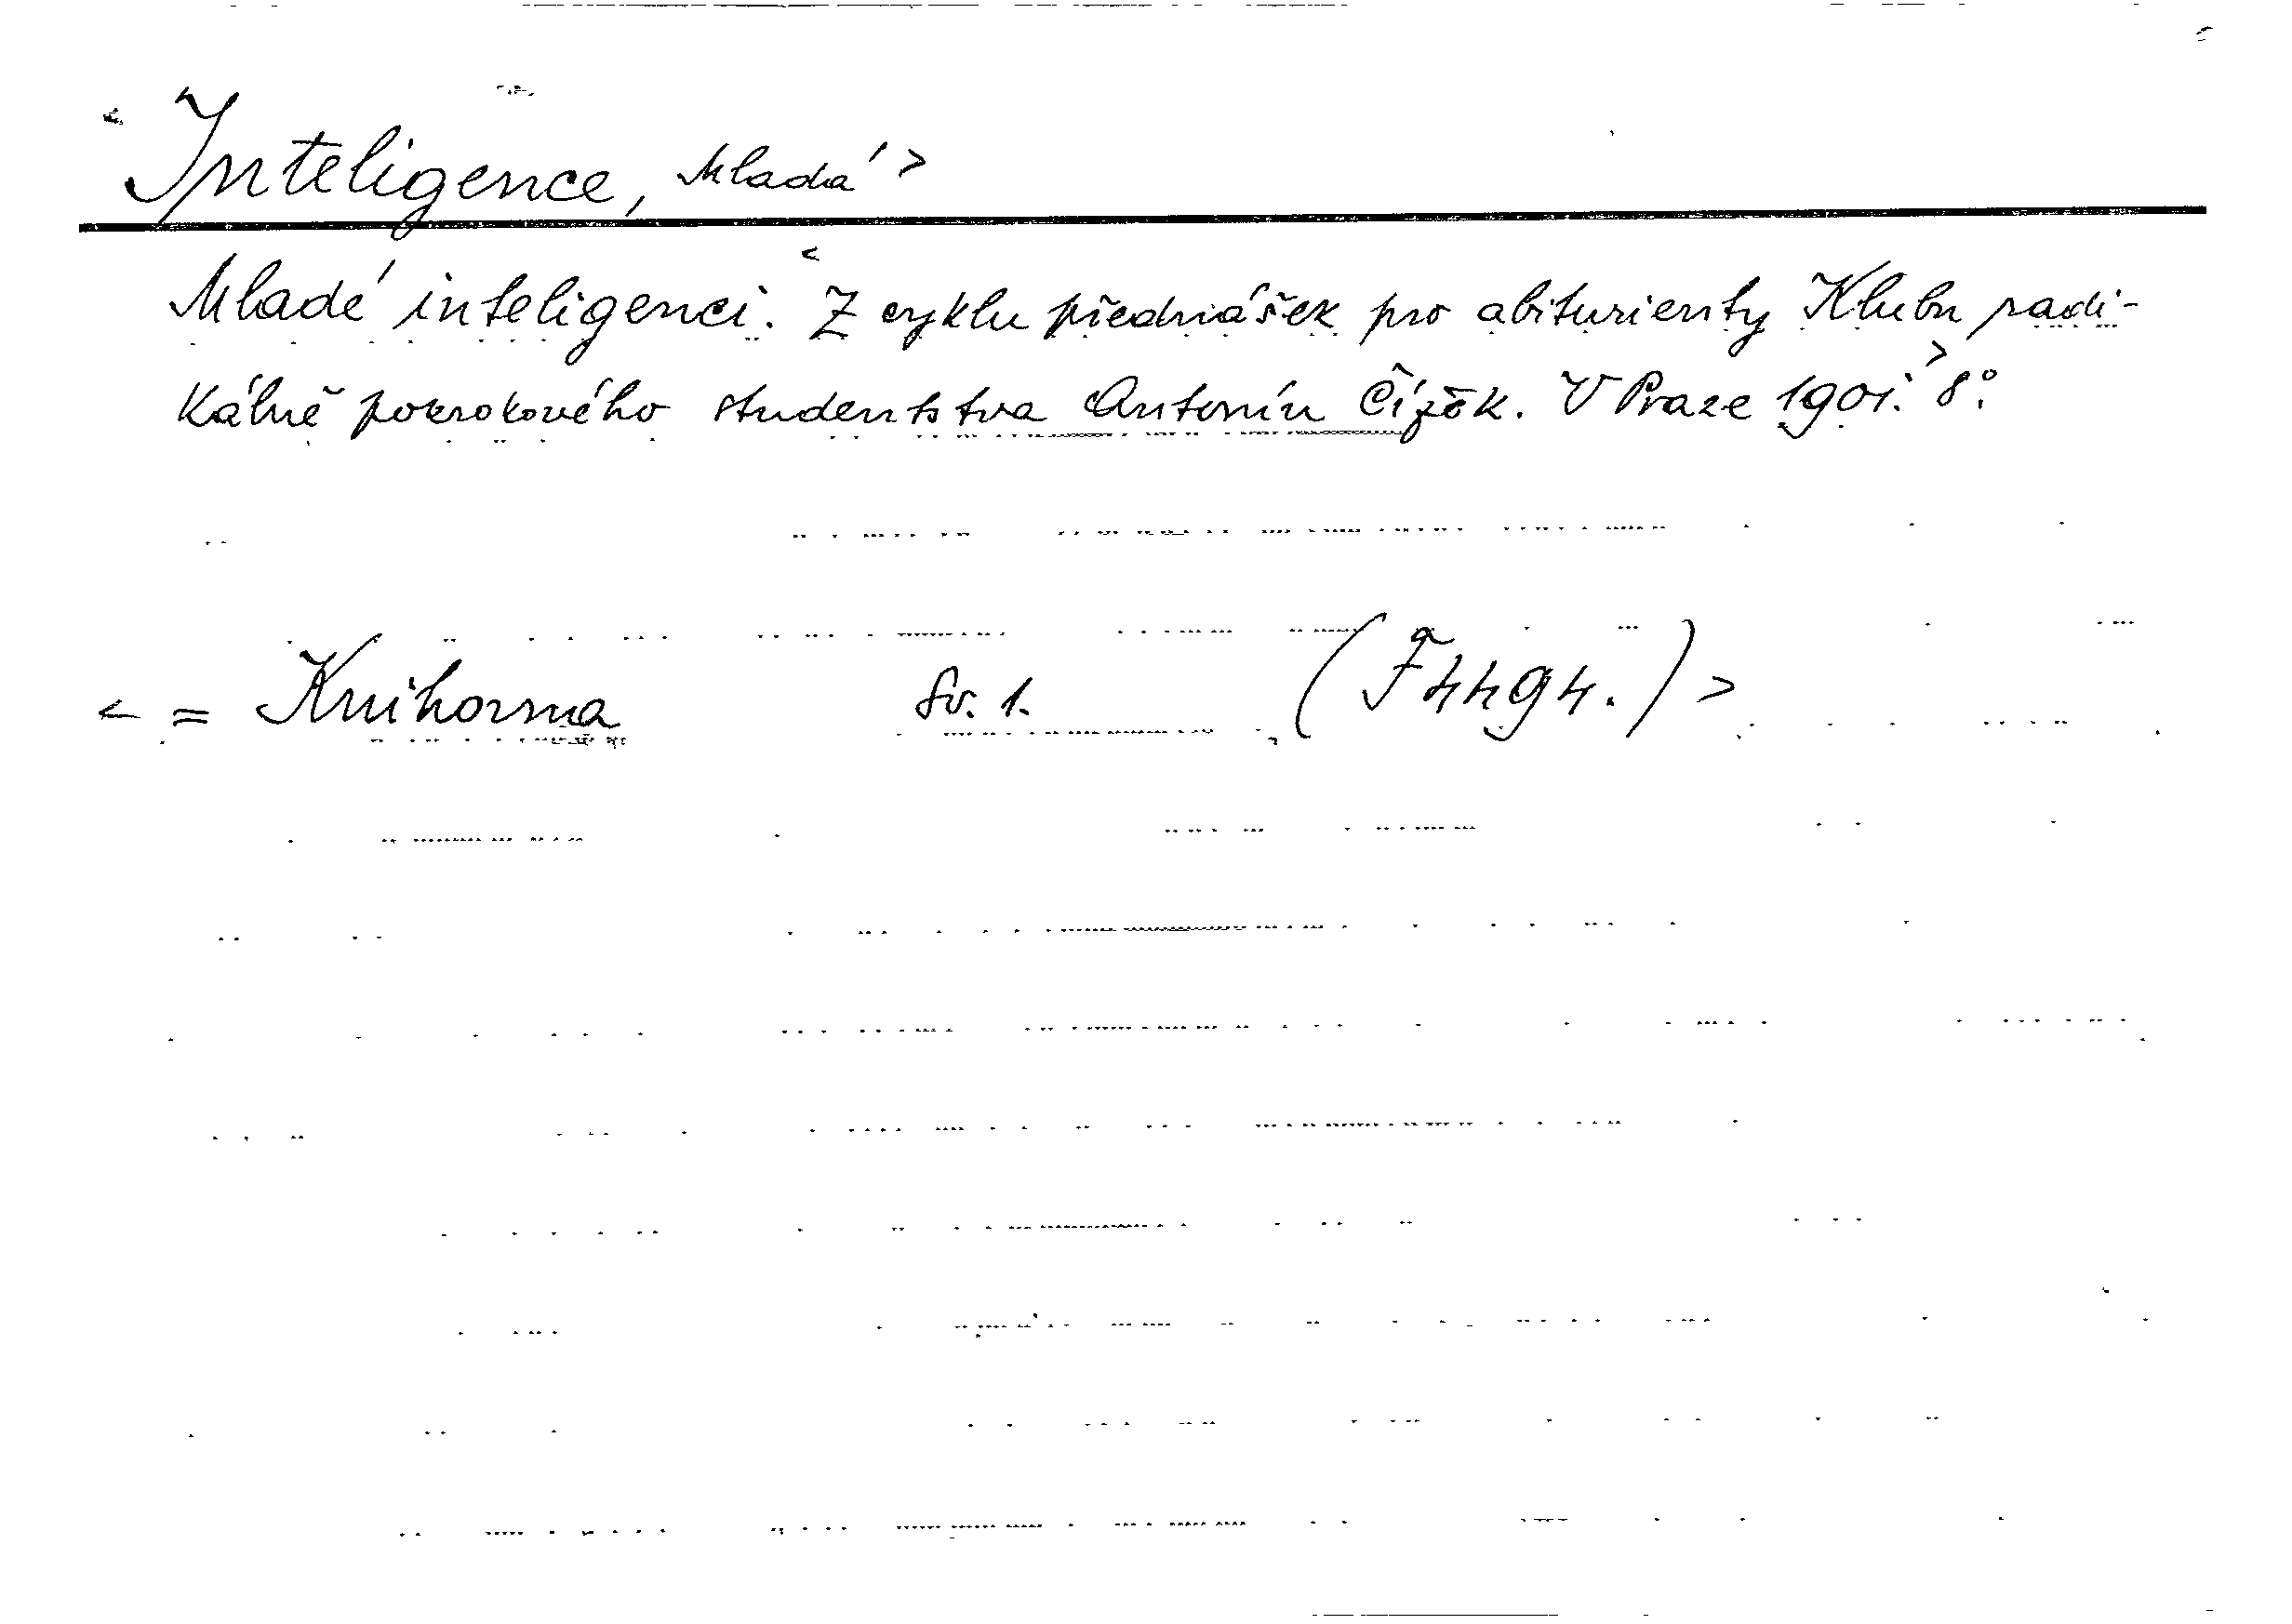 < Inteligence, Mladá >
Mladé inteligenci. < Z cyklu přednášek pro abiturienty Klubu radi-
kálně pokrokového studentstva Antonín Čížek. V Praze 1901. > 8°.
< = Knihovna Sv. 1. (F 4494.) >